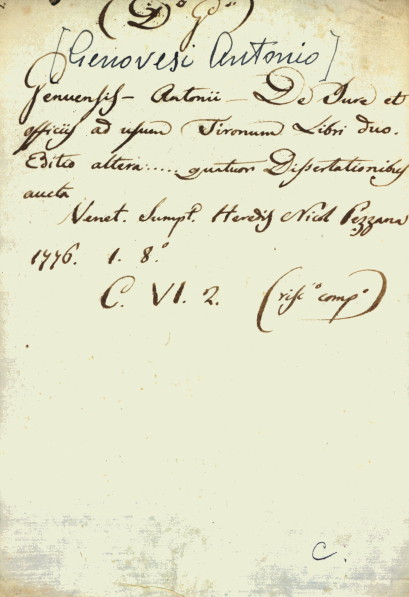 (D.º Gº)
[Genovesi Antonio]
Genuensis - Antonii - De Jure et
officiis ad usum Tironum Libri duo.
Editio altera..... quatuor Dissertationibus
aucta
Venet. Sumpt. Heredis Nicol Pezzana
1776. 1. 8.º
C. VI. 2. (risc.º comp.º)
C.